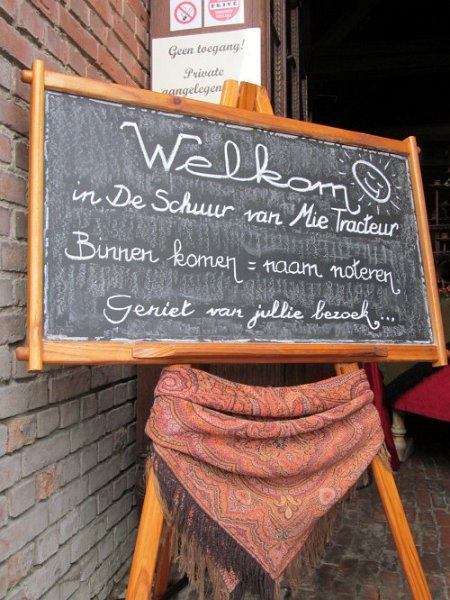 PRIVE
Geen toegang!
Private
aangelegen
Welkom
in De Schuur van Mie Tracteur
Binnen komen = naam noteren
Geniet van jullie bezoek...